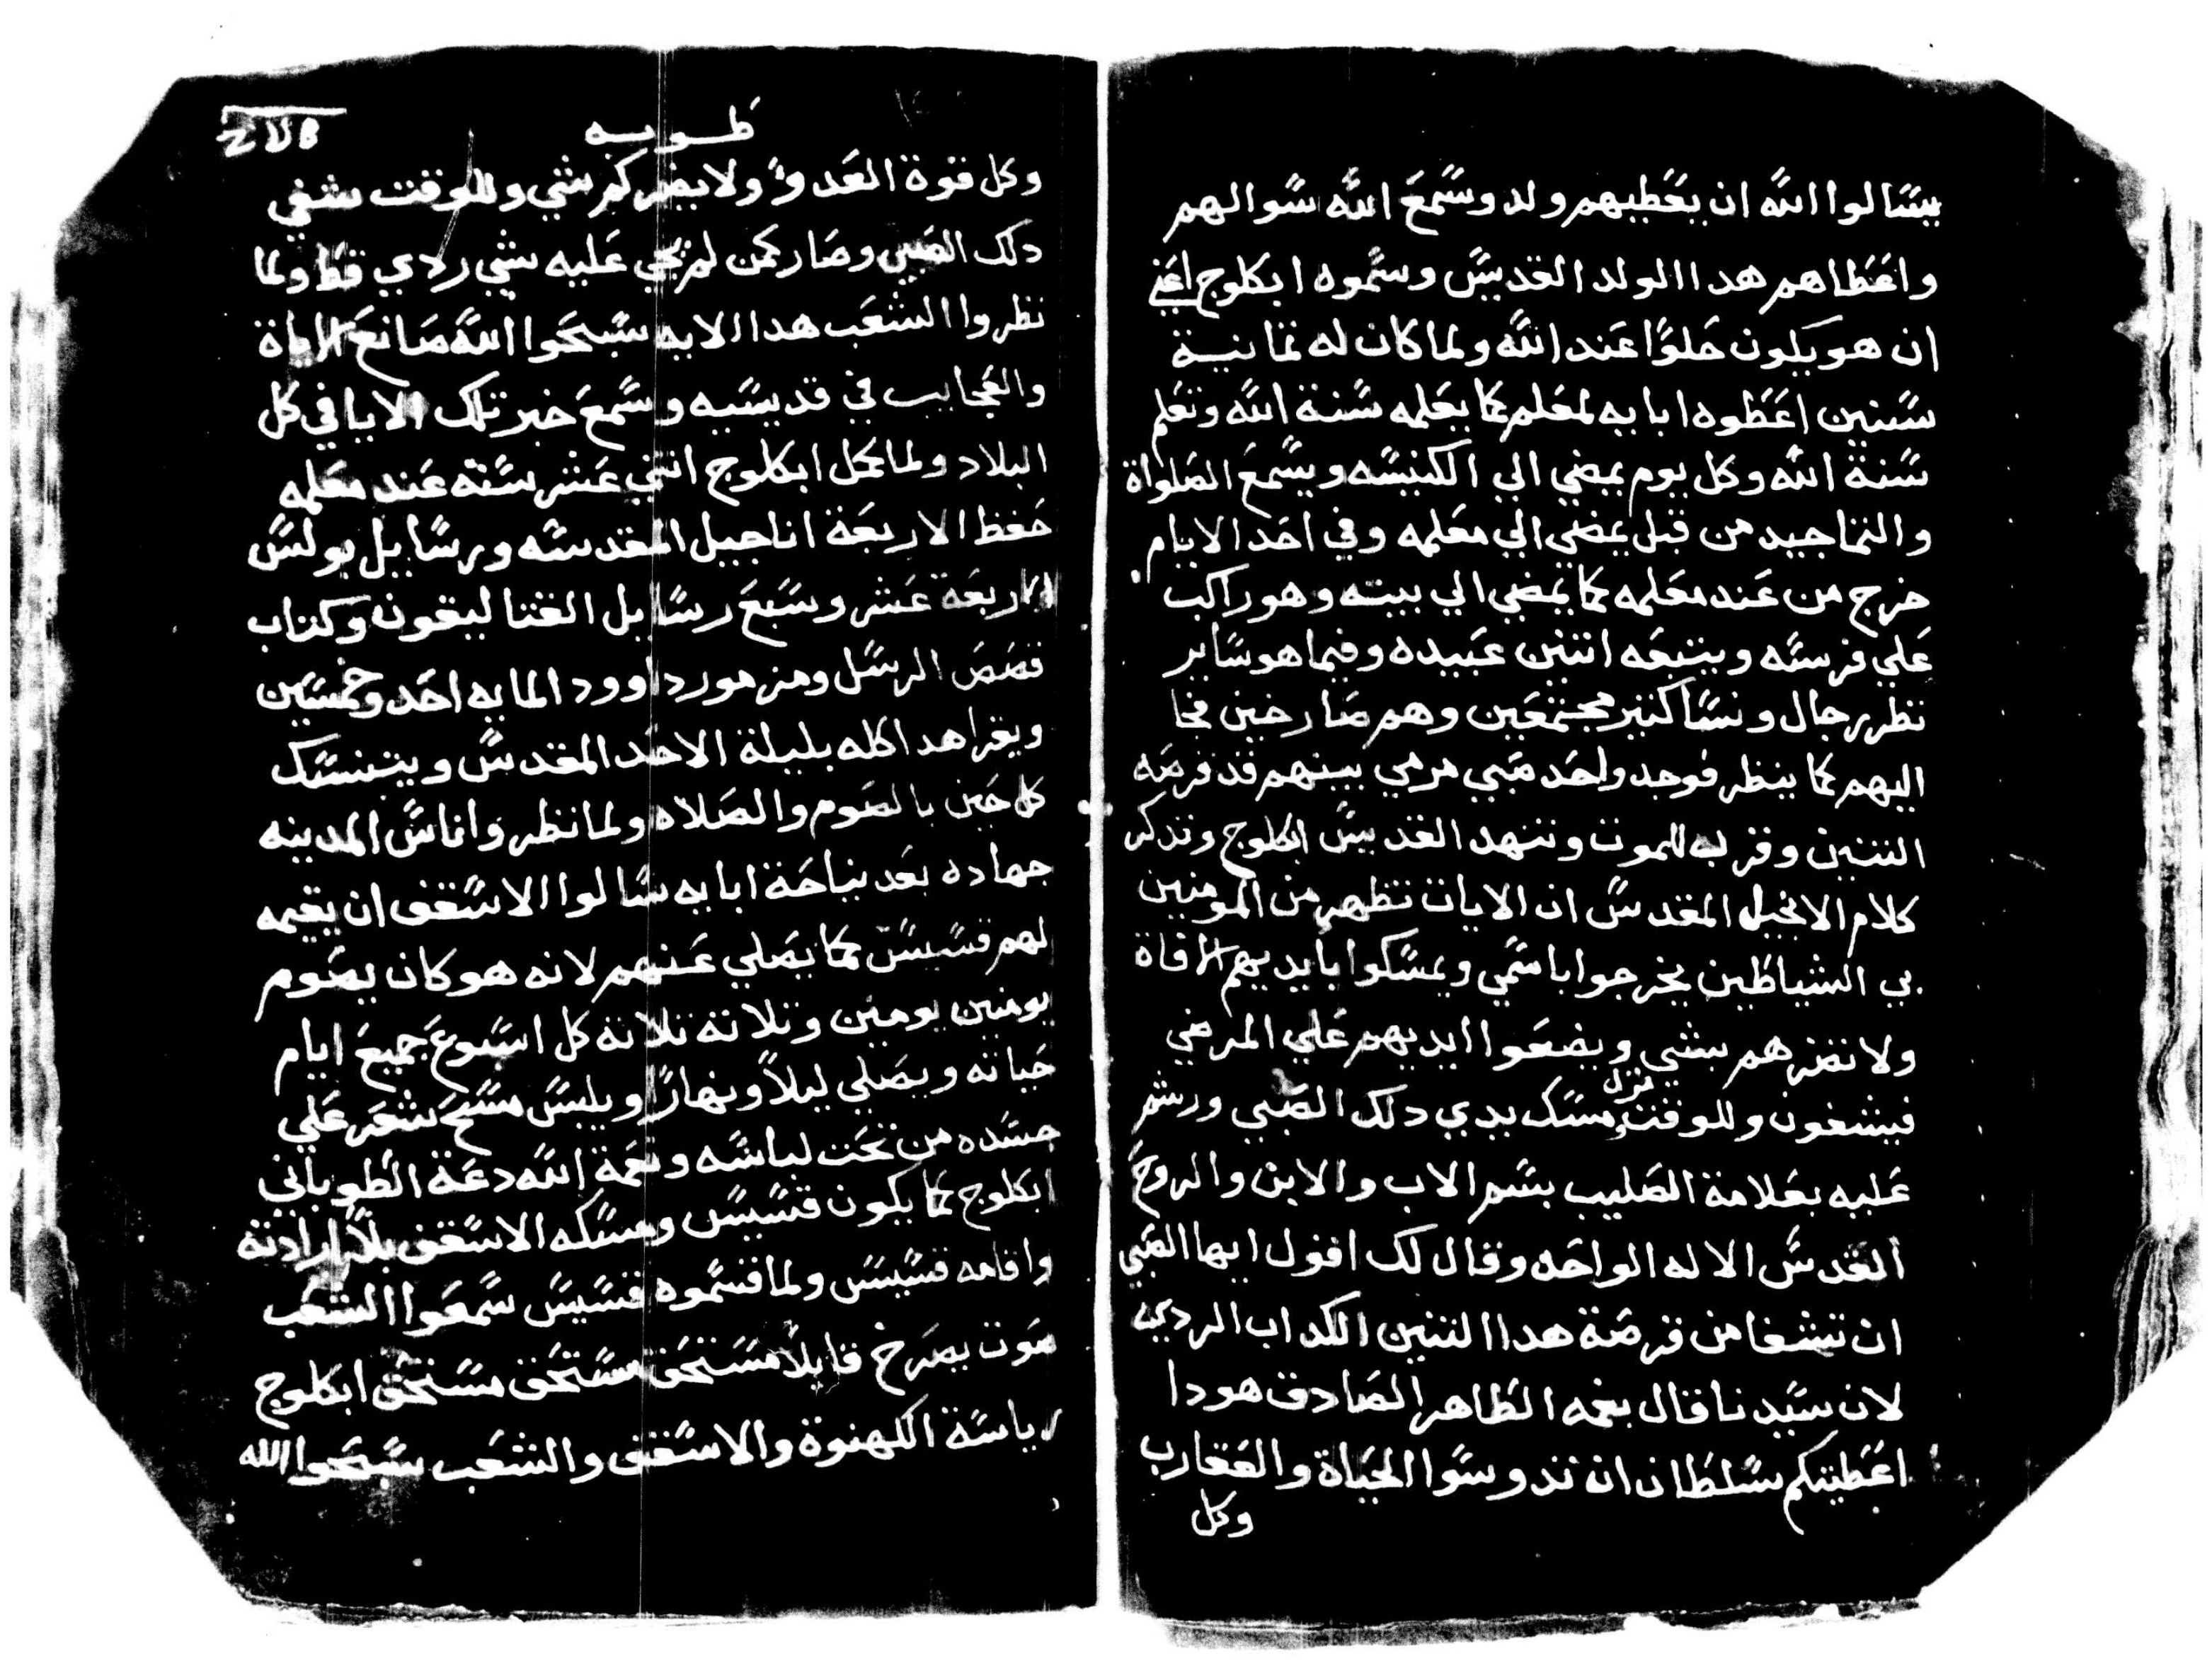 يسالوا الله ان يعطيهم ولد وسمع الله سوالهم
واعطاهم هدا الولد القديس وسموه ابكلوج اعني
ان هو يكون حلوًا عند الله ولما كان له تمانية
سنين اعطوه ابايه لمعلم كما يعلمه سنة الله وتعلم
سنة الله وكل يوم يمضي الي الكنيسه ويسمع الصلواة
والتماجيد من قبل يمضي الي معلمه وفي احد الايام
خرج من عند معلمه كما يمضي الي بيته وهو راكب
علي فرسه ويتبعه اتنين عبيده وفيما هو ساير
نظر رجال ونسا كتير مجتمعين وهم صارخين فجا
اليهم كما ينظر فوجد واحد صبي مرمي بينهم قد قرصه
التنين وقرب للموت وتنهد القديس ابكلوج وتدكر
كلام الانجيل المقدس ان الايات تظهر من المومنين
بي الشياطين يخرجوا باسمي ويمسكوا بايديهم الافاة
ولا تضرهم بشي ويضعوا ايديهم علي المرضي
فيشفون وللوقت نزل ومسك يدي دلك الصبي ورشم
عليه بعلامة الصليب بسم الاب والابن والروح
القدس الاله الواحد وقال لك اقول ايها الصبي
ان تشفا من قرصة هدا التنين الكداب الردي
لان سيدنا قال بفمه الطاهر الصادق هودا
اعطيتكم سلطان ان تدوسوا الحياة والعقارب
وكل
طوبه
وكل قوة العدوّ ولا يضركم شي وللوقت شفي
دلك الصبي وصار كمن لم يجي عليه شي ردي قط ولما
نظروا الشعب هدا الايه سبحوا الله صانع الاياة
والعجايب في قديسيه وسمع خبر تلك الايا في كل
البلاد ولما كمل ابكلوج اتني عشر سنة عند معلمه
حفظ الاربعة اناجيل المقدسه ورسايل بولس
الاربعة عشر وسبع رسايل القتاليقون وكتاب
قصص الرسل ومزمور داوود المايه احد وخمسين
ويقرا هدا كله بليلة الاحد المقدس ويتنسك
كل حين بالصوم والصلاه ولما نظروا ناس المدينه
جهاده بعد نياحة ابايه سالوا الاسقف ان يقيمه
لهم قسيس كما يصلي عنهم لانه هو كان يصوم
يومين يومين وتلاتة تلاتة كل اسبوع جميع ايام
حياته ويصلي ليلاً ونهارًا ويلبس مسح شعر علي
جسده من تحت لباسه ونعمة الله دعة الطوباني
ابكلوج كما يكون قسيس ومسكه الاسقف بلا ارادته
واقامه قسيس ولما قسموه قسيس سمعوا الشعب
صوت يصرخ قايلاً مستحق مستحق مستحق ابكلوج
رياسة الكهنوة والاسقف والشعب سبحوا الله